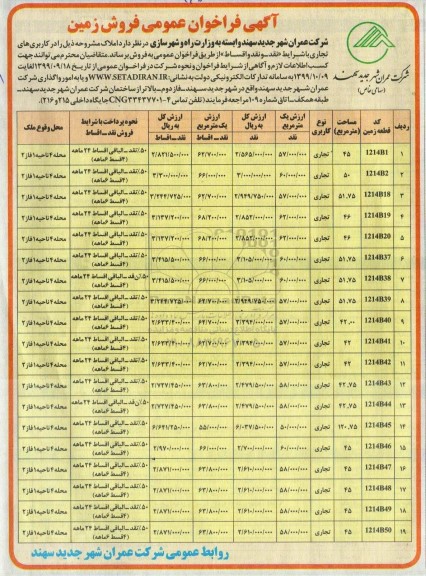 آگهی فراخوان عمومی فروش زمین
شرکت عمران شهر جدید سهند
(سهامی خاص)
شرکت عمران شهر جدید سهند وابسته به وزارت راه و شهرسازی در نظر دارد املاک مشروحه ذیل را در کاربری‌های
تجاری با شرایط «نقد_نقد و اقساط» از طریق فراخوان عمومی به فروش برساند. متقاضیان محترم می‌توانند جهت
کسب اطلاعات لازم و آگاهی از شرایط فراخوان و نحوه شرکت در فراخوان عمومی از تاریخ ۱۳۹۹/۰۹/۱۸ لغایت
۱۳۹۹/۱۰/۰۹ به سامانه تدارکات الکترونیکی دولت به نشانی: WWW.SETADIRAN.IR و یا به امور واگذاری شرکت
عمران شهر جدید سهند واقع در شهر جدید سهند_فاز دوم_بالاتر از ساختمان شرکت عمران شهر جدید سهند_
طبقه همکف_اتاق شماره ۱۰۹ مراجعه فرمایند (تلفن تماس ۴_۳۳۴۳۷۷۰۱ جایگاه CNG داخلی ۲۱۵ و ۲۱۶).
ردیف کد قطعه زمین مساحت (مترمربع) نوع کاربری ارزش یک مترمربع نقد ارزش کل به ریال نقد ارزش یک مترمربع نقد_اقساط ارزش کل به ریال نقد_اقساط نحوه پرداخت با شرایط فروش نقد_اقساط محل وقوع ملک
۱ 1214B1 ۴۵ تجاری ۵۷/۰۰۰/۰۰۰ ۲/۵۶۵/۰۰۰/۰۰۰ ۶۲/۷۰۰/۰۰۰ ۲/۸۲۱/۵۰۰/۰۰۰ ۵۰٪نقد_الباقی اقساط ۲۴ ماهه (۴قسط ۶ماهه) محله۴ناحیه۱فاز۲
۲ 1214B2 ۵۰ تجاری ۶۰/۰۰۰/۰۰۰ ۳/۰۰۰/۰۰۰/۰۰۰ ۶۶/۰۰۰/۰۰۰ ۳/۳۰۰/۰۰۰/۰۰۰ ۵۰٪نقد_الباقی اقساط ۲۴ ماهه (۴قسط ۶ماهه) محله۴ناحیه۱فاز۲
۳ 1214B18 ۵۱.۷۵ تجاری ۵۷/۰۰۰/۰۰۰ ۲/۹۴۹/۷۵۰/۰۰۰ ۶۲/۷۰۰/۰۰۰ ۳/۲۴۴/۷۲۵/۰۰۰ ۵۰٪نقد_الباقی اقساط ۲۴ ماهه (۴قسط ۶ماهه) محله۴ناحیه۱فاز۲
۴ 1214B19 ۴۶ تجاری ۶۲/۰۰۰/۰۰۰ ۲/۸۵۲/۰۰۰/۰۰۰ ۶۸/۲۰۰/۰۰۰ ۳/۱۳۷/۲۰۰/۰۰۰ ۵۰٪نقد_الباقی اقساط ۲۴ ماهه (۴قسط ۶ماهه) محله۴ناحیه۱فاز۲
۵ 1214B20 ۴۶ تجاری ۶۲/۰۰۰/۰۰۰ ۲/۸۵۲/۰۰۰/۰۰۰ ۶۸/۲۰۰/۰۰۰ ۳/۱۳۷/۲۰۰/۰۰۰ ۵۰٪نقد_الباقی اقساط ۲۴ ماهه (۴قسط ۶ماهه) محله۴ناحیه۱فاز۲
۶ 1214B37 ۵۱.۷۵ تجاری ۶۰/۰۰۰/۰۰۰ ۳/۱۰۵/۰۰۰/۰۰۰ ۶۶/۰۰۰/۰۰۰ ۳/۴۱۵/۵۰۰/۰۰۰ ۵۰٪نقد_الباقی اقساط ۲۴ ماهه (۴قسط ۶ماهه) محله۴ناحیه۱فاز۲
۷ 1214B38 ۵۱.۷۵ تجاری ۶۰/۰۰۰/۰۰۰ ۳/۱۰۵/۰۰۰/۰۰۰ ۶۶/۰۰۰/۰۰۰ ۳/۴۱۵/۵۰۰/۰۰۰ ۵۰٪نقد_الباقی اقساط ۲۴ ماهه (۴قسط ۶ماهه) محله۴ناحیه۱فاز۲
۸ 1214B39 ۵۱.۷۵ تجاری ۵۷/۰۰۰/۰۰۰ ۲/۹۴۹/۷۵۰/۰۰۰ ۶۲/۷۰۰/۰۰۰ ۳/۲۴۴/۷۲۵/۰۰۰ ۵۰٪نقد_الباقی اقساط ۲۴ ماهه (۴قسط ۶ماهه) محله۴ناحیه۱فاز۲
۹ 1214B40 ۴۲.۰۰ تجاری ۵۷/۰۰۰/۰۰۰ ۲/۳۹۴/۰۰۰/۰۰۰ ۶۲/۷۰۰/۰۰۰ ۲/۶۳۳/۴۰۰/۰۰۰ ۵۰٪نقد_الباقی اقساط ۲۴ ماهه (۴قسط ۶ماهه) محله۴ناحیه۱فاز۲
۱۰ 1214B41 ۴۲ تجاری ۵۷/۰۰۰/۰۰۰ ۲/۳۹۴/۰۰۰/۰۰۰ ۶۲/۷۰۰/۰۰۰ ۲/۶۳۳/۴۰۰/۰۰۰ ۵۰٪نقد_الباقی اقساط ۲۴ ماهه (۴قسط ۶ماهه) محله۴ناحیه۱فاز۲
۱۱ 1214B42 ۴۲ تجاری ۵۷/۰۰۰/۰۰۰ ۲/۳۹۴/۰۰۰/۰۰۰ ۶۲/۷۰۰/۰۰۰ ۲/۶۳۳/۴۰۰/۰۰۰ ۵۰٪نقد_الباقی اقساط ۲۴ ماهه (۴قسط ۶ماهه) محله۴ناحیه۱فاز۲
۱۲ 1214B43 ۴۲.۷۵ تجاری ۵۸/۰۰۰/۰۰۰ ۲/۴۷۹/۵۰۰/۰۰۰ ۶۳/۸۰۰/۰۰۰ ۲/۷۲۷/۴۵۰/۰۰۰ ۵۰٪نقد_الباقی اقساط ۲۴ ماهه (۴قسط ۶ماهه) محله۴ناحیه۱فاز۲
۱۳ 1214B44 ۴۲.۷۵ تجاری ۵۸/۰۰۰/۰۰۰ ۲/۴۷۹/۵۰۰/۰۰۰ ۶۳/۸۰۰/۰۰۰ ۲/۷۲۷/۴۵۰/۰۰۰ ۵۰٪نقد_الباقی اقساط ۲۴ ماهه (۴قسط ۶ماهه) محله۴ناحیه۱فاز۲
۱۴ 1214B45 ۱۲۰.۷۵ تجاری ۵۰/۰۰۰/۰۰۰ ۶/۰۳۷/۵۰۰/۰۰۰ ۵۵/۰۰۰/۰۰۰ ۶/۶۴۱/۲۵۰/۰۰۰ ۵۰٪نقد_الباقی اقساط ۲۴ ماهه (۴قسط ۶ماهه) محله۴ناحیه۱فاز۲
۱۵ 1214B46 ۴۵ تجاری ۶۰/۰۰۰/۰۰۰ ۲/۷۰۰/۰۰۰/۰۰۰ ۶۶/۰۰۰/۰۰۰ ۲/۹۷۰/۰۰۰/۰۰۰ ۵۰٪نقد_الباقی اقساط ۲۴ ماهه (۴قسط ۶ماهه) محله۴ناحیه۱فاز۲
۱۶ 1214B47 ۴۵ تجاری ۵۸/۰۰۰/۰۰۰ ۲/۶۱۰/۰۰۰/۰۰۰ ۶۳/۸۰۰/۰۰۰ ۲/۸۷۱/۰۰۰/۰۰۰ ۵۰٪نقد_الباقی اقساط ۲۴ ماهه (۴قسط ۶ماهه) محله۴ناحیه۱فاز۲
۱۷ 1214B48 ۴۵ تجاری ۵۸/۰۰۰/۰۰۰ ۲/۶۱۰/۰۰۰/۰۰۰ ۶۳/۸۰۰/۰۰۰ ۲/۸۷۱/۰۰۰/۰۰۰ ۵۰٪نقد_الباقی اقساط ۲۴ ماهه (۴قسط ۶ماهه) محله۴ناحیه۱فاز۲
۱۸ 1214B49 ۴۵ تجاری ۵۸/۰۰۰/۰۰۰ ۲/۶۱۰/۰۰۰/۰۰۰ ۶۳/۸۰۰/۰۰۰ ۲/۸۷۱/۰۰۰/۰۰۰ ۵۰٪نقد_الباقی اقساط ۲۴ ماهه (۴قسط ۶ماهه) محله۴ناحیه۱فاز۲
۱۹ 1214B50 ۴۵ تجاری ۵۸/۰۰۰/۰۰۰ ۲/۶۱۰/۰۰۰/۰۰۰ ۶۳/۸۰۰/۰۰۰ ۲/۸۷۱/۰۰۰/۰۰۰ ۵۰٪نقد_الباقی اقساط ۲۴ ماهه (۴قسط ۶ماهه) محله۴ناحیه۱فاز۲
روابط عمومی شرکت عمران شهر جدید سهند